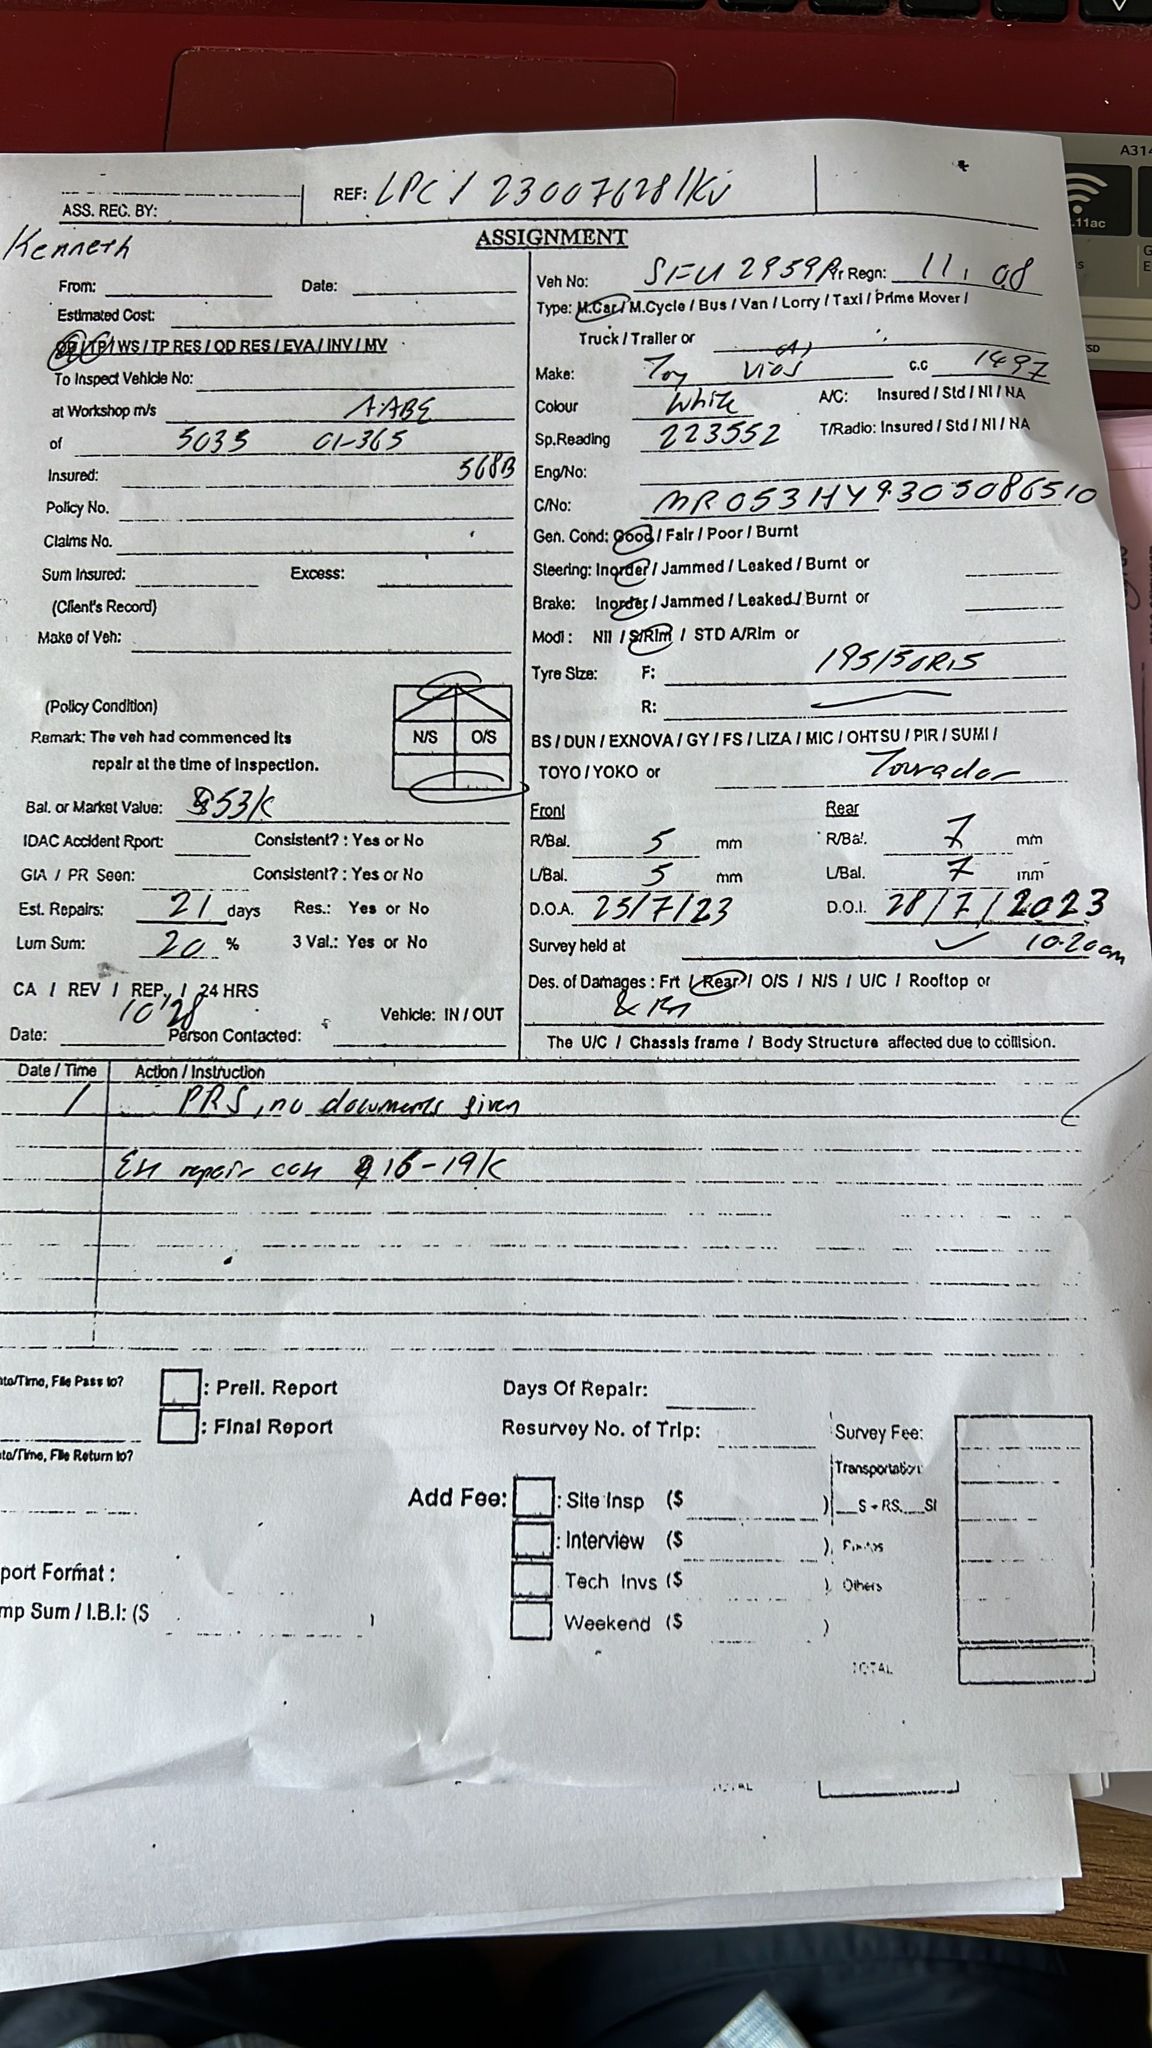 A314
.11ac
REF: LPC / 23007628/Kv
ASS. REC. BY:
Kenneth
ASSIGNMENT
From: Date:
Estimated Cost:
/ TP / WS / TP RES / OD RES / EVA / INV / MV
To Inspect Vehicle No:
at Workshop m/s AABE
of 5035 01-365
Insured: 568B
Policy No.
Claims No.
Sum Insured: Excess:
(Client's Record)
Make of Veh:
(Policy Condition)
N/S O/S
Remark: The veh had commenced its
repair at the time of inspection.
Bal. or Market Value: $53K
IDAC Accident Rport: Consistent? : Yes or No
GIA / PR Seen: Consistent? : Yes or No
Est. Repairs: 21 days Res.: Yes or No
Lum Sum: 20 % 3 Val.: Yes or No
CA / REV / REP. / 24 HRS
10'28 Vehicle: IN / OUT
Date: Person Contacted:
Veh No: SFU 2959R Yr Regn: 11, 08
Type: M.Car / M.Cycle / Bus / Van / Lorry / Taxi / Prime Mover /
Truck / Trailer or
Make: Toy Vios c.c 1497
Colour White A/C: Insured / Std / NI / NA
Sp.Reading 223552 T/Radio: Insured / Std / NI / NA
Eng/No:
C/No: MR053HY9305086510
Gen. Cond: Good / Fair / Poor / Burnt
Steering: Inorder / Jammed / Leaked / Burnt or
Brake: Inorder / Jammed / Leaked / Burnt or
Modi: Nil / S/Rim / STD A/Rim or
Tyre Size: F: 195/50R15
R:
BS / DUN / EXNOVA / GY / FS / LIZA / MIC / OHTSU / PIR / SUMI /
TOYO / YOKO or Tourador
Front Rear
R/Bal. 5 mm R/Bal. 7 mm
L/Bal. 5 mm L/Bal. 7 mm
D.O.A. 25/7/23 D.O.I. 28/7/2023
Survey held at 10.20am
Des. of Damages : Frt / Rear / O/S / N/S / U/C / Rooftop or
The U/C / Chassis frame / Body Structure affected due to collision.
Date / Time Action / Instruction
/ PRS, no documents given
repair 16-19K
: Preli. Report
: Final Report
Days Of Repair:
Resurvey No. of Trip:
File Pass to?
File Return to?
Survey Fee:
Transportation
S - RS. SI
Others
TOTAL
Add Fee: : Site Insp ($ )
: Interview ($ )
Tech Invs ($ )
Weekend ($ )
port Format :
mp Sum / I.B.I: ($ )
TOTAL